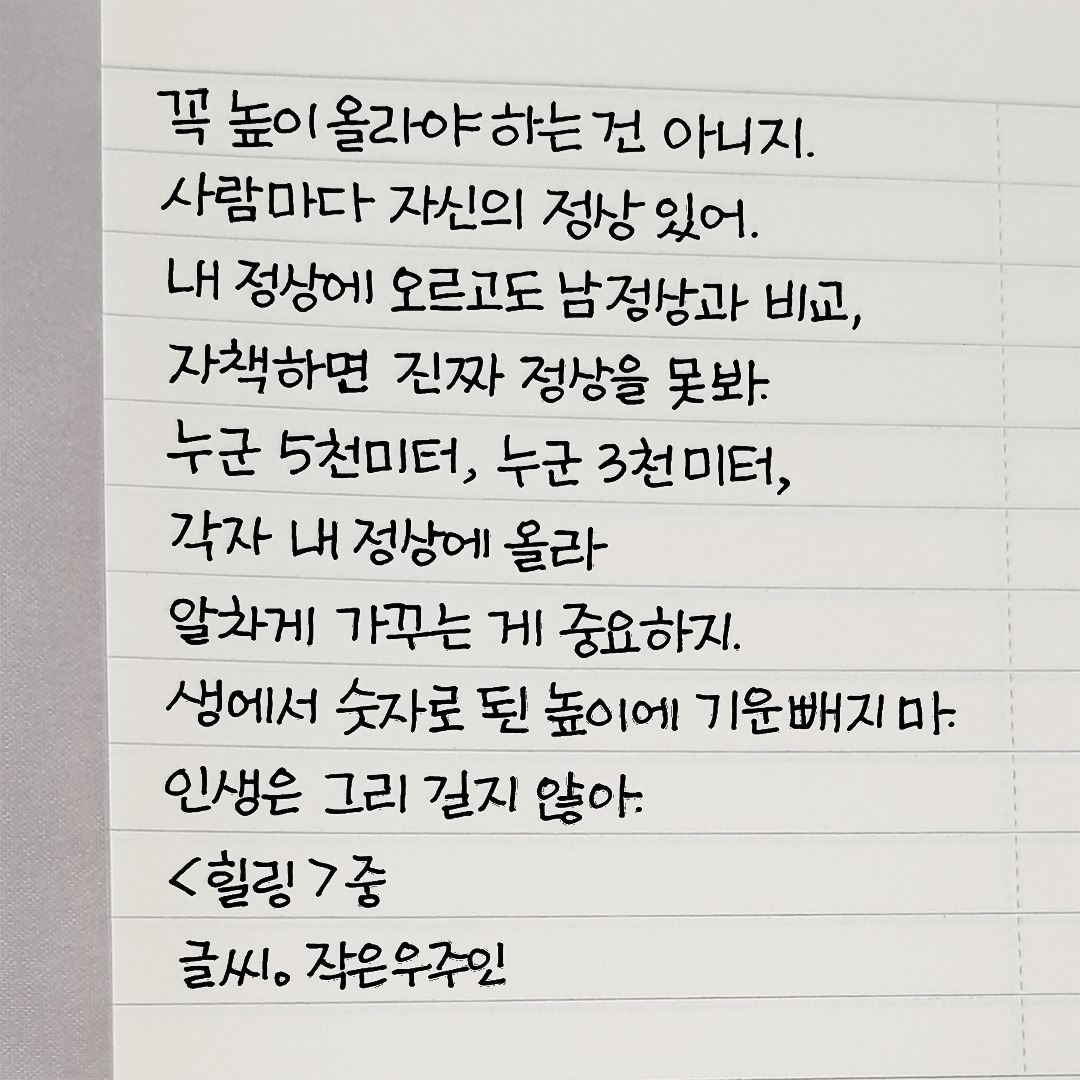 꼭 높이 올라야 하는 건 아니지.
사람마다 자신의 정상 있어.
내 정상에 오르고도 남 정상과 비교,
자책하면 진짜 정상을 못 봐.
누군 5천미터, 누군 3천미터,
각자 내 정상에 올라
알차게 가꾸는 게 중요하지.
생에서 숫자로 된 높이에 기운 빼지 마.
인생은 그리 길지 않아.
<힐링> 중
글씨。작은우주인